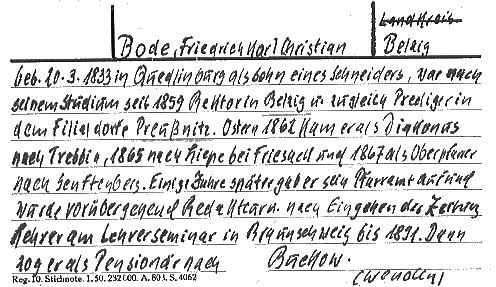 Bode, Friedrich Karl Christian
Landkreis
Belzig
geb. 20.3.1833 in Quedlinburg als Sohn eines Schneiders, war nach
seinem Studium seit 1859 Rektor in Belzig u. zugleich Prediger in
dem Filialdorfe Preußnitz. Ostern 1862 kam er als Diakonus
nach Trebbin, 1865 nach Liepe bei Friesack und 1867 als Oberpfarrer
nach Senftenberg. Einige Jahre später gab er sein Pfarramt auf und
wurde vorübergehend Redakteur u. nach Eingehen der Zeitung
Lehrer am Lehrerseminar in Braunschweig bis 1891. Dann
zog er als Pensionär nach Buckow.
Reg. 10. Stichnote. 1. 50. 232000. A. 803. S. 4062